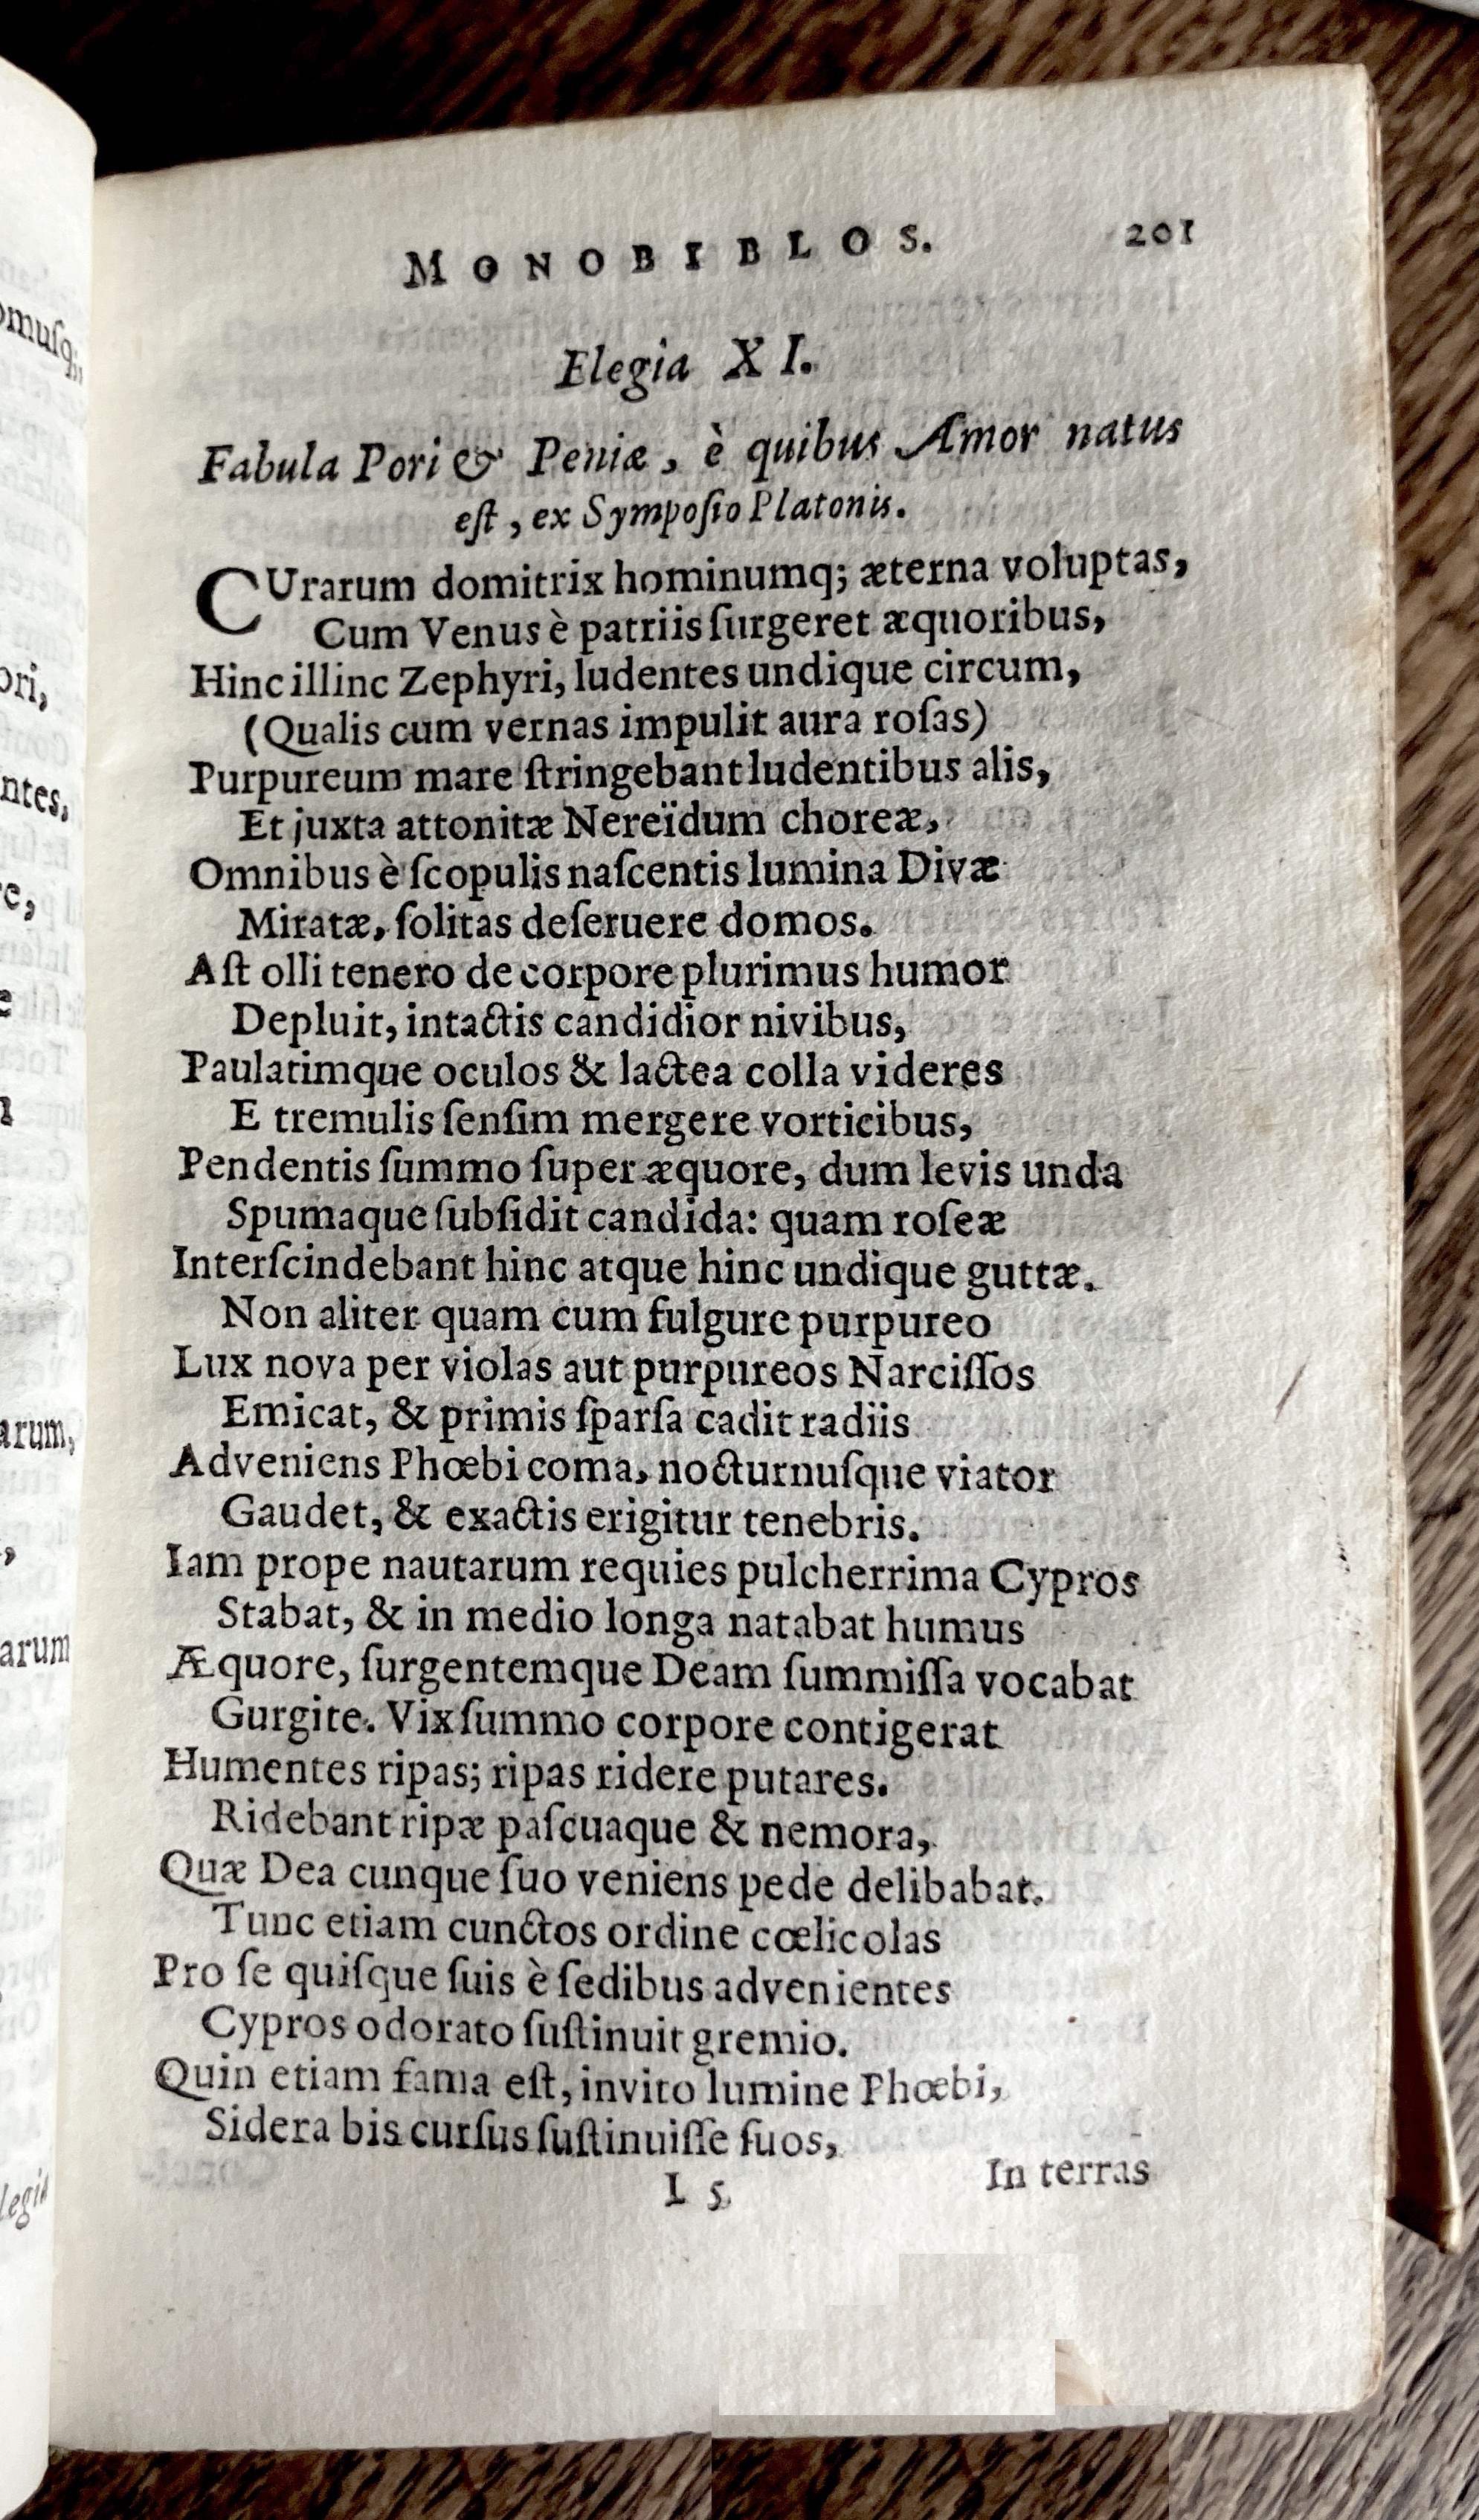 MONOBIBLOS. 201
Elegia XI.
Fabula Pori & Peniæ, è quibus Amor natus
eſt, ex Sympoſio Platonis.
CUrarum domitrix hominumq; æterna voluptas,
Cum Venus è patriis ſurgeret æquoribus,
Hinc illinc Zephyri, ludentes undique circum,
(Qualis cum vernas impulit aura roſas)
Purpureum mare ſtringebant ludentibus alis,
Et juxta attonitæ Nereïdum choreæ,
Omnibus è ſcopulis naſcentis lumina Divæ
Miratæ, ſolitas deſeruere domos.
Aſt olli tenero de corpore plurimus humor
Depluit, intactis candidior nivibus,
Paulatimque oculos & lactea colla videres
E tremulis ſenſim mergere vorticibus,
Pendentis ſummo ſuper æquore, dum levis unda
Spumaque ſubſidit candida: quam roſeæ
Interſcindebant hinc atque hinc undique guttæ.
Non aliter quam cum fulgure purpureo
Lux nova per violas aut purpureos Narciſſos
Emicat, & primis ſparſa cadit radiis
Adveniens Phœbi coma, nocturnuſque viator
Gaudet, & exactis erigitur tenebris.
Iam prope nautarum requies pulcherrima Cypros
Stabat, & in medio longa natabat humus
Æquore, ſurgentemque Deam ſummiſſa vocabat
Gurgite. Vix ſummo corpore contigerat
Humentes ripas; ripas ridere putares.
Ridebant ripæ paſcuaque & nemora,
Quæ Dea cunque ſuo veniens pede delibabat.
Tunc etiam cunctos ordine cœlicolas
Pro ſe quiſque ſuis è ſedibus advenientes
Cypros odorato ſuſtinuit gremio.
Quin etiam fama eſt, invito lumine Phœbi,
Sidera bis curſus ſuſtinuiſſe ſuos,
I 5 In terras
omuſq;
ori,
ntes,
re,
e
arum,
arum
legia